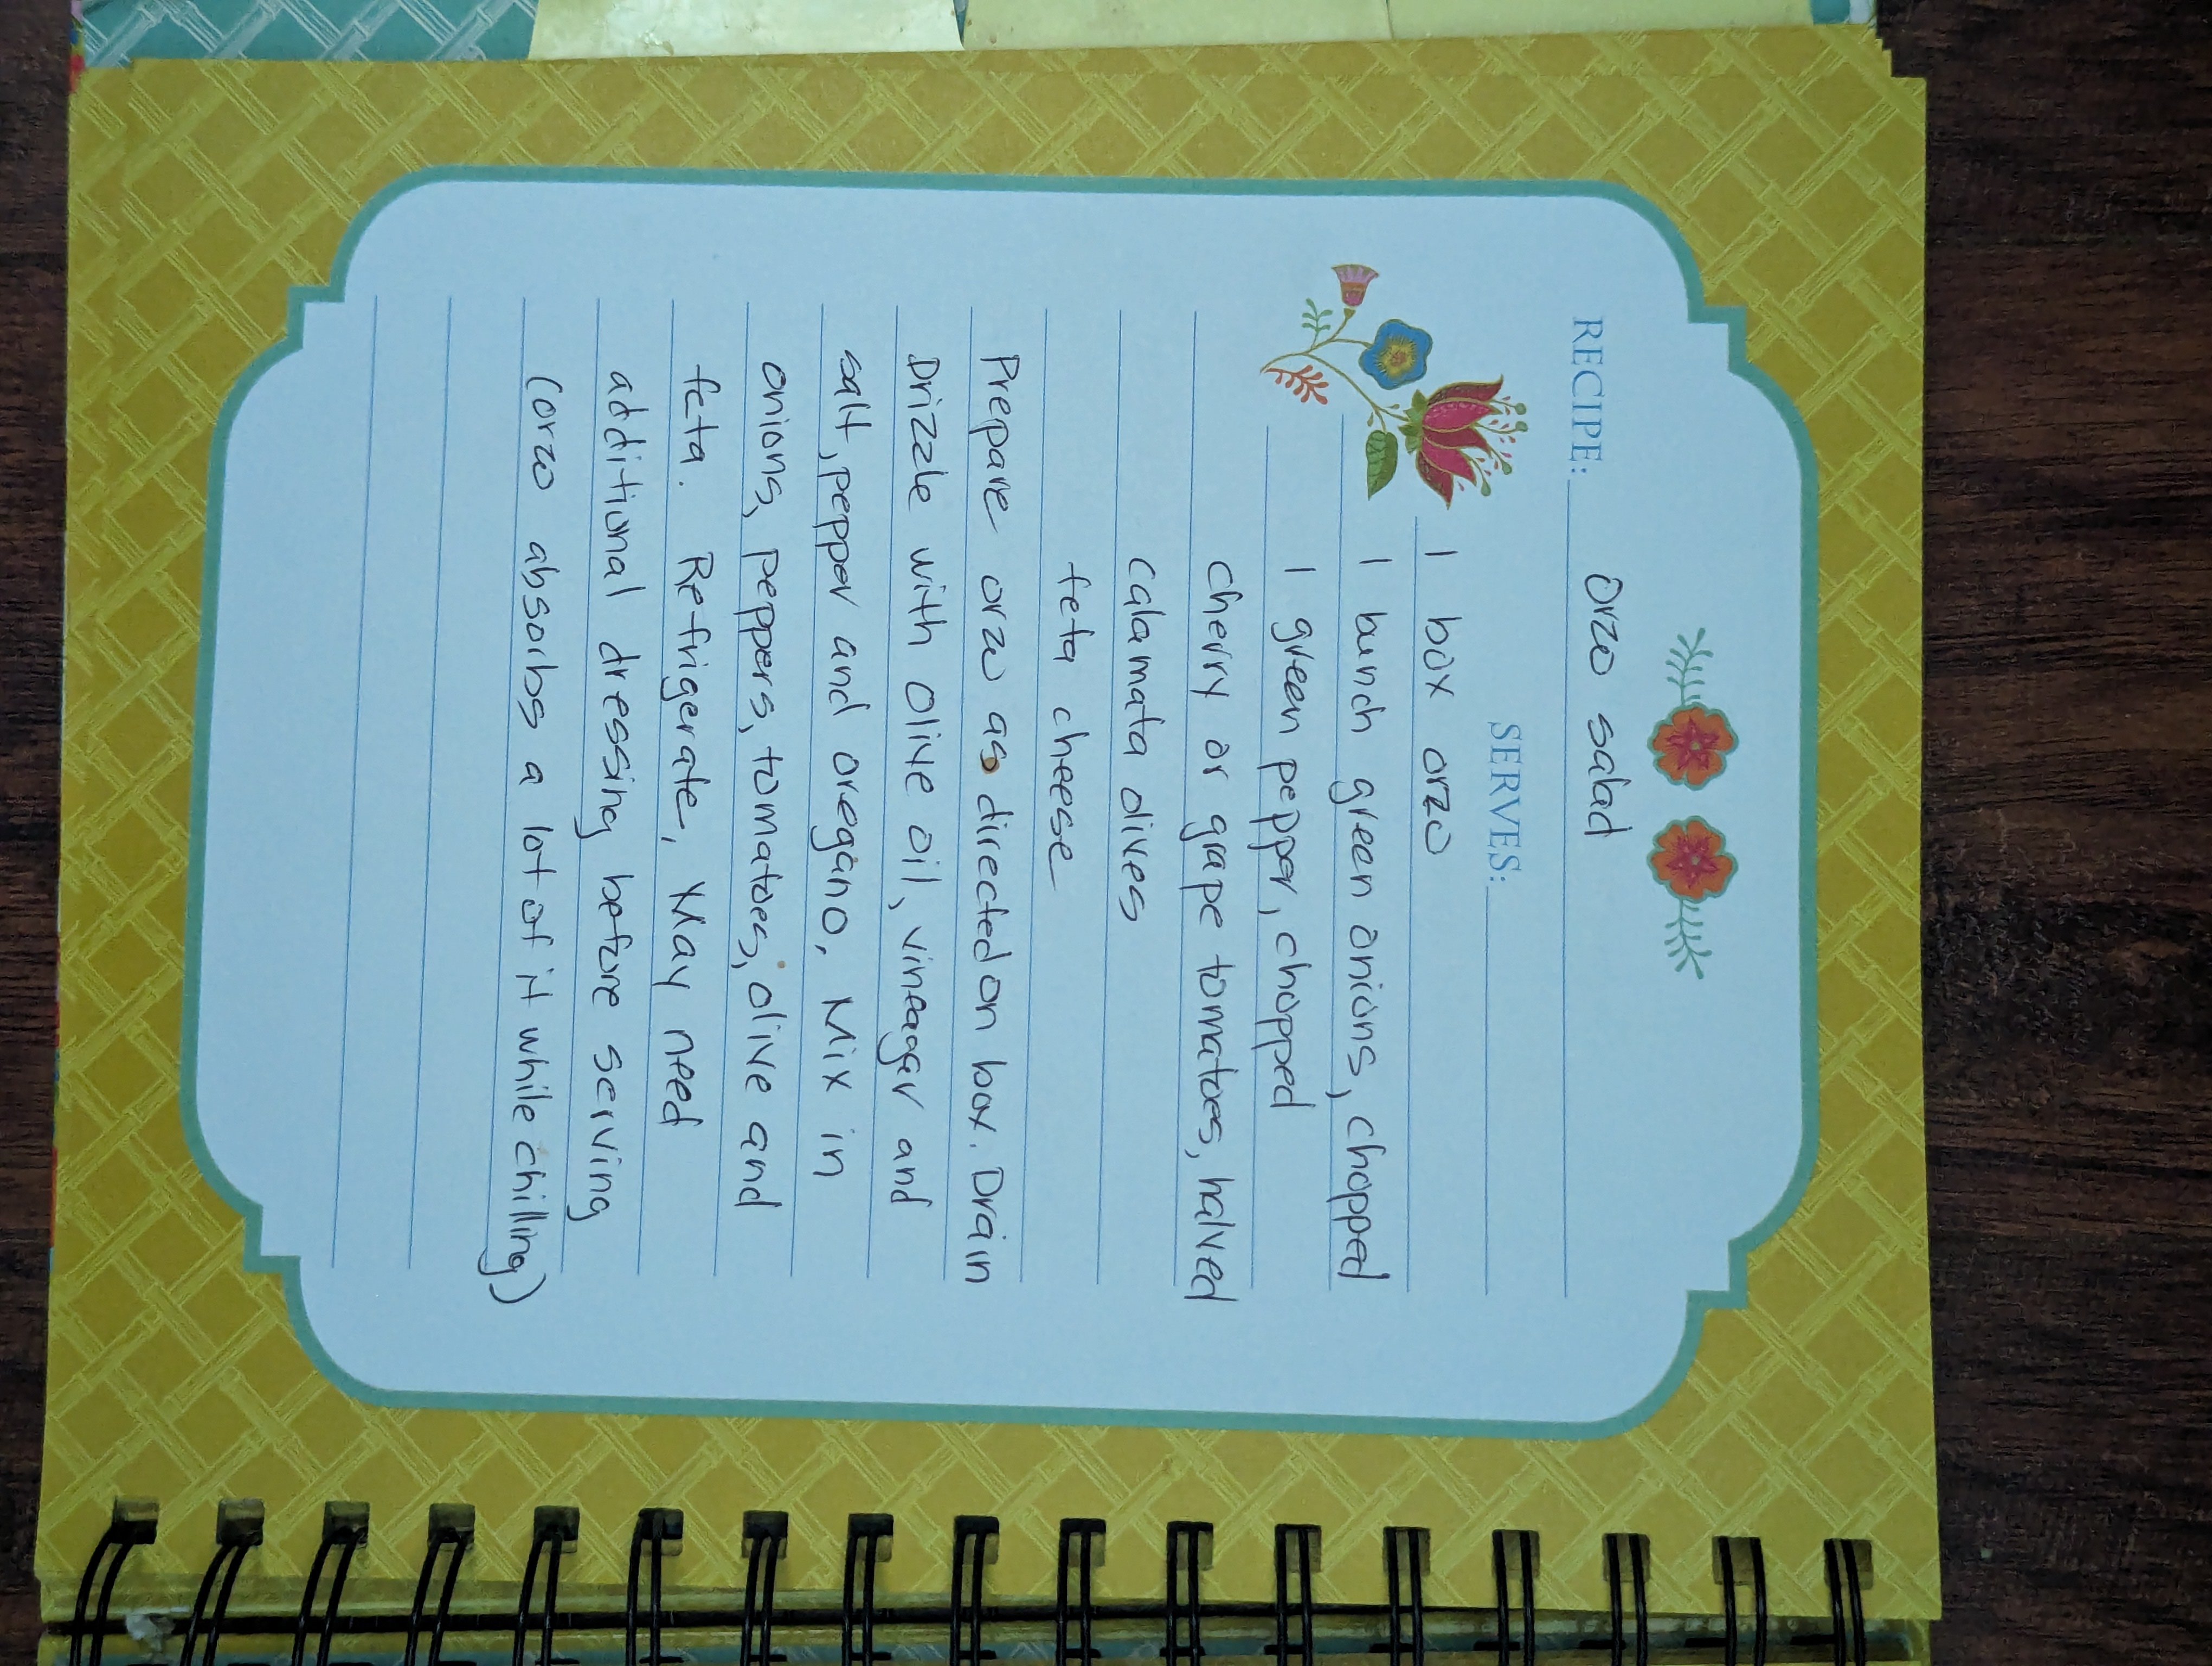 RECIPE: Orzo salad
SERVES:
1 box orzo
1 bunch green onions, chopped
1 green pepper, chopped
cherry or grape tomatoes, halved
Calamata olives
feta cheese
Prepare orzo as directed on box. Drain
Drizzle with olive oil, vineagar and
salt, pepper and oregano. Mix in
onions, peppers, tomatoes, olive and
feta. Refrigerate, May need
additional dressing before serving
(orzo absorbs a lot of it while chilling)